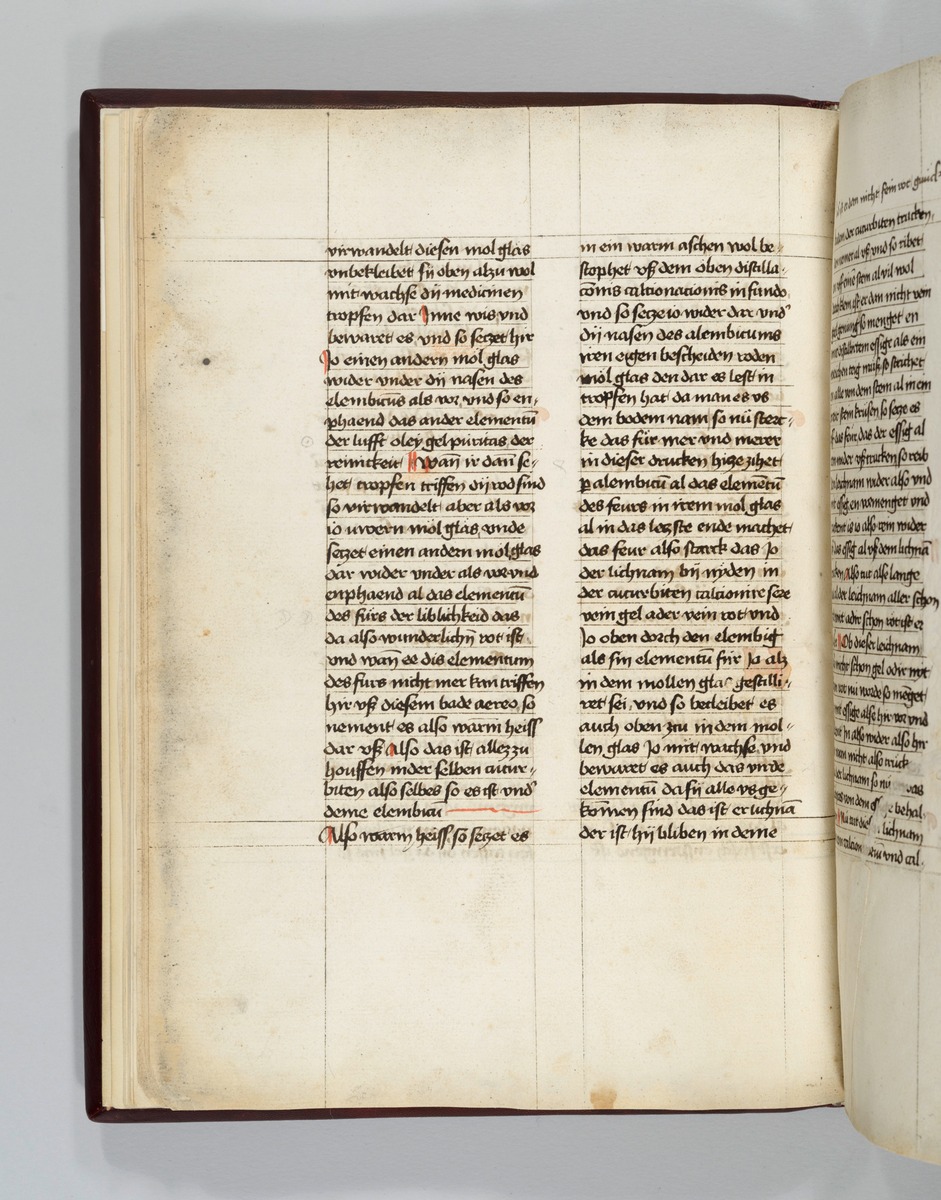 virwandelt diesen mol glas
vnbekleibet sij oben alzu wol
mit wachse dij medicinen
tropfen dar Jnne wis vnd
bewaret es vnd so seczet hir
Jo einen andern mol glas
wider vnder dij nasen des
elembicus als vor vnd so en-
phaend das ander elementū
der lufft oley gel puritas der
reinickeit Wan̄ ir dan̄ se-
het tropfen triffen dij rod sind
so virwandelt aber als vor
io uwern mol glas vnde
seczet einen andern mol glas
dar wider vnder als vor vnd
enphaend al das elementū
des fürs der liblichkeid das
da also wunderlichn rot ist
vnd wan̄ ee dis elementum
des furs nicht mer kan triffen
hir vß diesem bade aereo so
nement es also warm heiss
dar vß Also das ist allez zu
houffen inder selben cucur-
biten also selbes so es ist vnd
deme elembicu
Also warm heiss so seczet es
in ein warm aschen wol be-
stophet vß dem oben distilla-
cōnis calcionacionis in fundo
vnd so secze io wider dar vnd'
dij nasen des alembicums
iren eigen bescheiden roden
mol glas den dar es lest in
tropfen hat da man es vs
dem bodem nam so nū sterc-
ke das für mer vnd merer
in dieser drucken hicze zihet
ꝑ alembicū al das elemētū
des feurs in irem mol glas
al in das leczste ende machet
das feur also starck das Jo
der lichnam bij nyden in
der cucurbiten calcionire seze
vein gel ader vein rot vnd
Jo oben dorch den elembig
als sin elementū für Jo alz
in dem mollen glas gestilli-
ret sei vnd so becleibet es
auch oben zcu in dem mol-
len glas Jo mit wachse vnd
bewaret es auch das virde
elementū da sij alle vs ge-
kom̄en sind das ist er lichnā
der ist hij bliben in deme
nicht sein rot
der cucurbiten trucken
vß vnd so ribet
stem al vil wol
er dan nicht vein
so menget en
essige als ein
alle von dem stem al in em
so secze es
das feur das der essig al
wider vß trucken so reib
lichnam wider also vnd
essig en vermenget vnd
is io also rein wider
das essig al vß dem lichnā
Also tut also lange
der leichnam aller schon
adir schon rot ist er
Ob dieser leichnam
nicht schon gel odir nit
rot nu worde so menget
essige also hir vor vnd
Jn also wider also hir
nicht also truck
lichnam so nu
von dem behal
lichnam
vnd cal